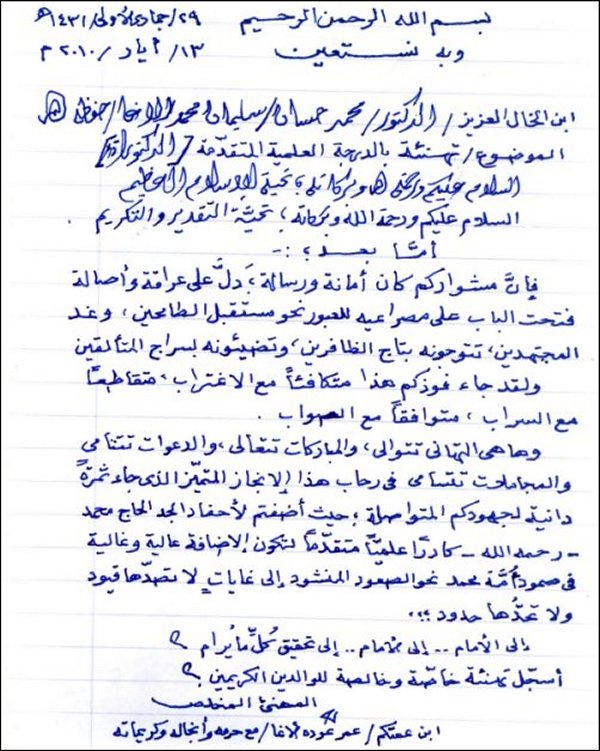 بسم الله الرحمن الرحيم ٢٩/جمادى الأولى/١٤٣١هـ
وبه نستعين ١٣/أيار/٢٠١٠م
ابن الخال العزيز/الدكتور/محمد حسان/سليمان محمد الاغا/حفظه الله
الموضوع/تهنئة بالدرجة العلمية المتقدّمة/الدكتوراة/
السلام عليكم ورحمة الله وبركاته؛ تحية الإسلام العظيم
السلام عليكم ورحمة الله وبركاته؛ تحيّة التقدير والتكريم.
أمّا بعد؛:-
فإنَّ مشواركم كان أمانة ورسالة؛ دلَّ على عراقة وأصالة
فتحت الباب على مصراعيه للعبور نحو مستقبل الطامحين، وغد
المجتهدين، تتوجونه بتاج الظافرين، وتضيئونه بسراج المتألقين
ولقد جاء فوزكم هذا متكافئاً مع الاغتراب، متقاطعاً
مع السراب، متوافقاً مع الصواب.
وها هي التهاني تتوالى، والمباركات تتعالى، والدعوات تتنامى
والمجاملات تتسامى في رحاب هذا الإنجاز المتميّز الذي جاء ثمرةً
دانية لجهودكم المتواصلة؛ حيث أضفتم لأحفاد الجد الحاج محمد
- رحمه الله - كادرًا علميّاً متقدّماً لتكون الإضافة عالية وغالية
في صمود أمَّة محمد نحو الصعود المنشود إلى غاياتٍ لا تصدّها قيود
ولا تحدُّها حدود؛؛،
إلى الأمام .. إلى الأمام .. إلى تحقيق كُلِّ ما يُرام
أسجّل تهنئة خاصّة وخالصة للوالدين الكريمين
المهنئ المخلص
ابن عمتكم/عمر عوده الأغا/مع حرمه وأنجاله وكريماته